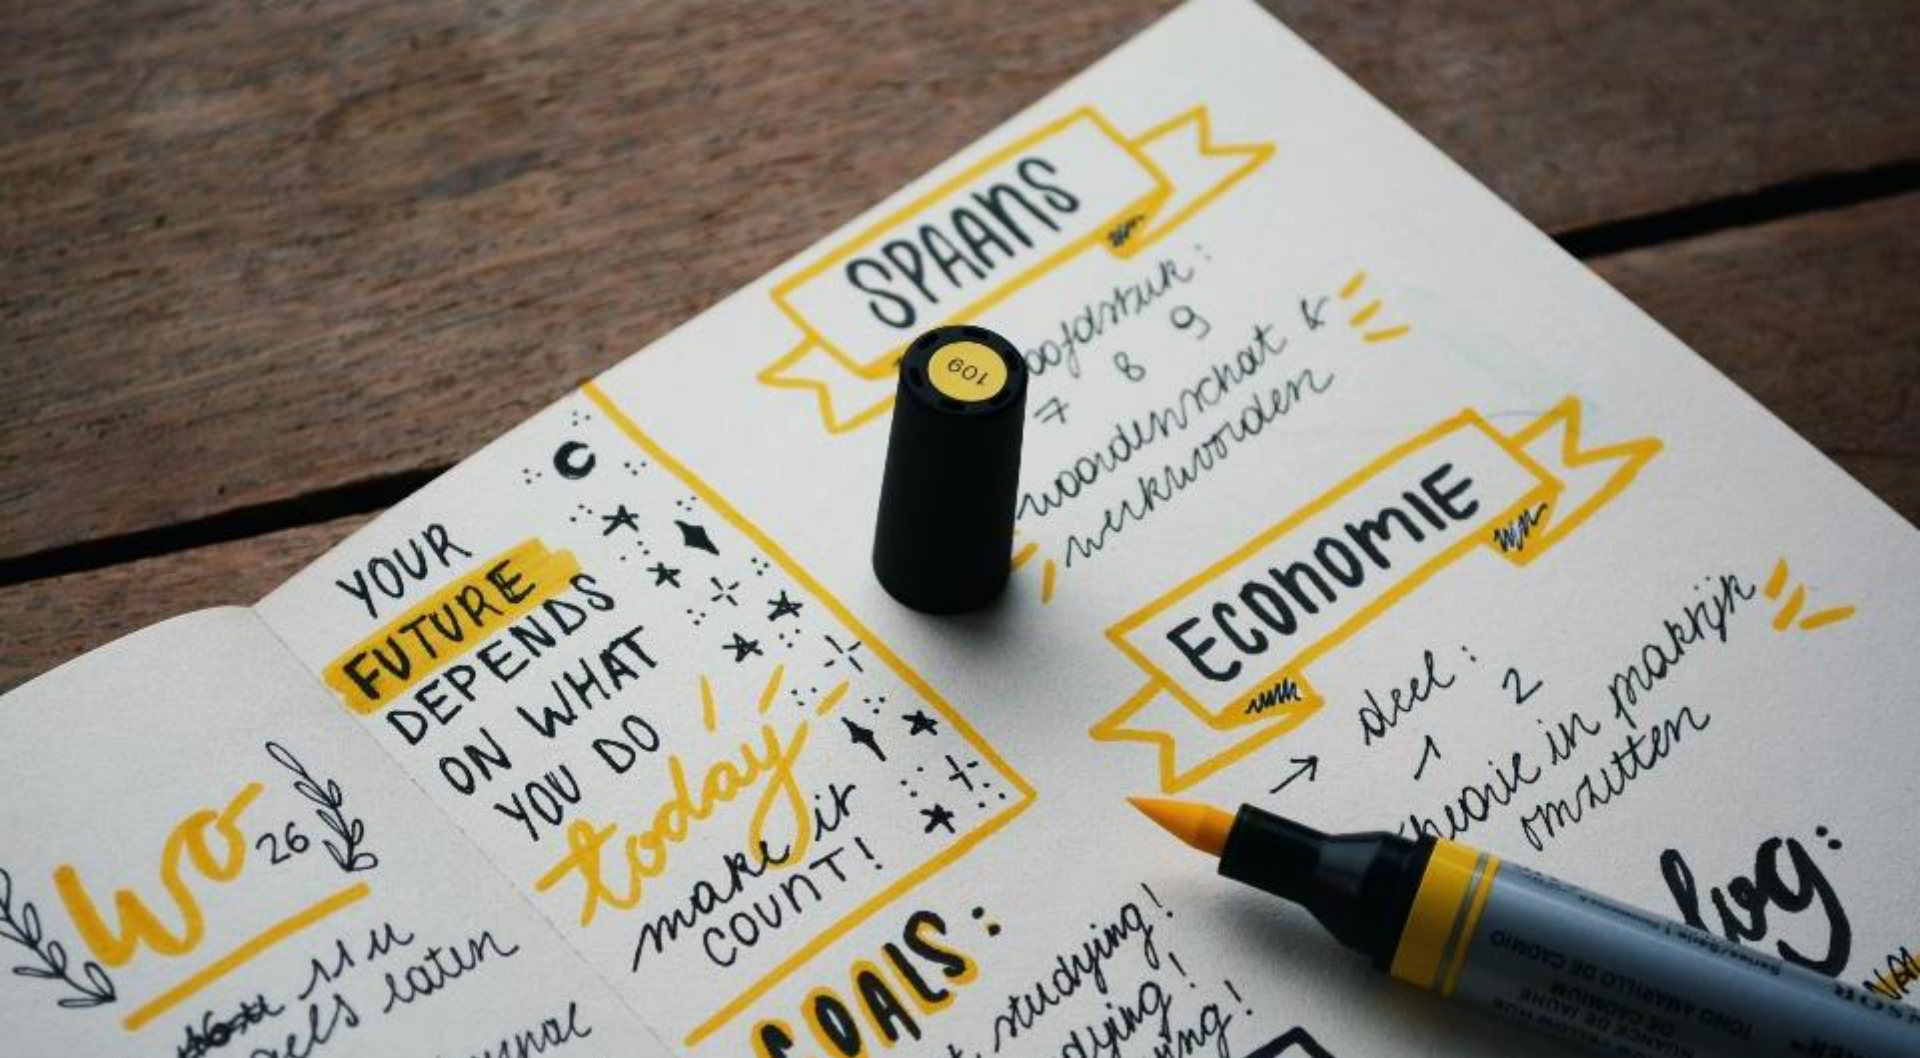 SPAANS
hoofdstuk:
7 8 9
woordenschat &
werkwoorden
109
ECONOMIE
→ deel:
1 2
theorie in praktijk
omzetten
YOUR
FUTURE
DEPENDS
ON WHAT
YOU DO
today
make it
COUNT!
WO
26
11 u
laten
GOALS:
studying!
log:
TONO AMARILLO DE CADMIO
DE CADMIUM